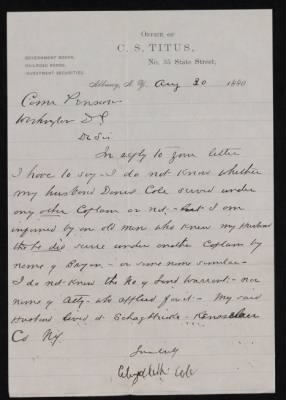 OFFICE OF
C. S. TITUS,
No. 35 State Street,
GOVERNMENT BONDS,
RAILROAD BONDS,
INVESTMENT SECURITIES.
Albany, N. Y. Aug 30 1890
Comr Pensions
Washington D C
Dr Sir
In reply to your letter
I have to say - I do not know whether
my husband Daniel Cole served under
any other Captain or not. - but I am
informed by an old man who knew my Husband
that he did serve under another Captain by
name of - or some name similar -
I do not know the No of Land Warrant. - nor
name of Atty - who applied for it. - My said
Husband lived at Schaghticoke - Rensselaer
Co NY.
Sincerely
Elizabeth Cole